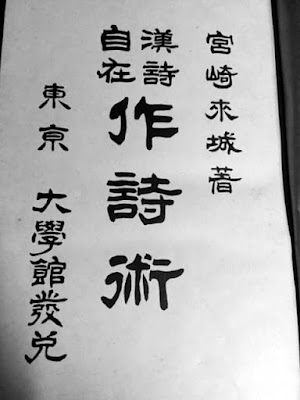 宮崎來城著
漢詩自在
作詩術
東京 大學館發兌